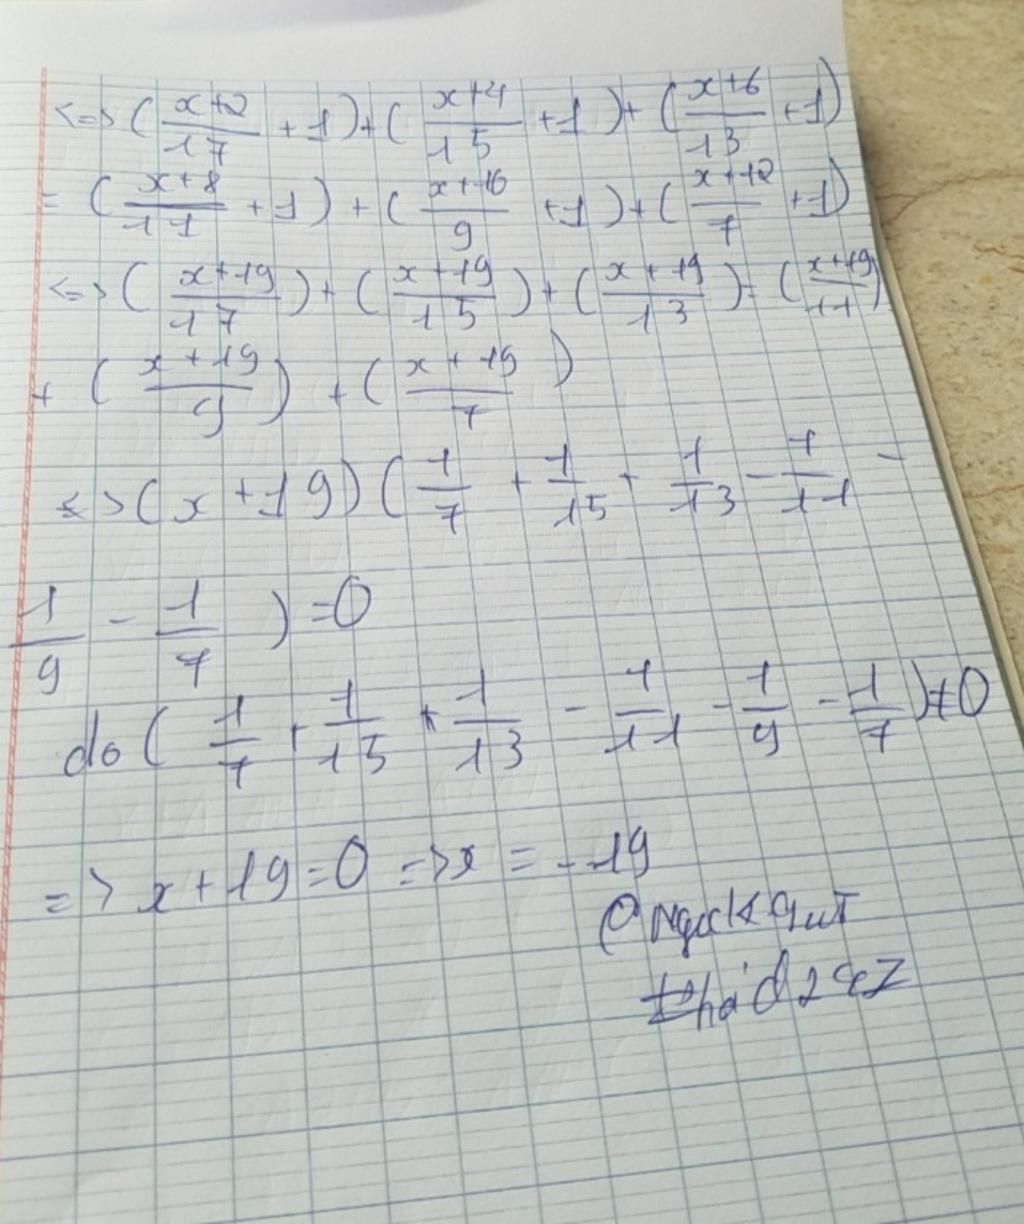 <=> (x+2/17 + 1) + (x+4/15 + 1) + (x+6/13 + 1)
= (x+8/11 + 1) + (x+10/9 + 1) + (x+12/7 + 1)
<=> (x+19/17) + (x+19/15) + (x+19/13) = (x+19/11)
+ (x+19/9) + (x+19/7)
<=> (x+19)(1/7 + 1/15 + 1/13 - 1/11 -
1/9 - 1/7) = 0
do (1/7 + 1/15 + 1/13 - 1/11 - 1/9 - 1/7) ≠ 0
=> x+19=0 => x = -19